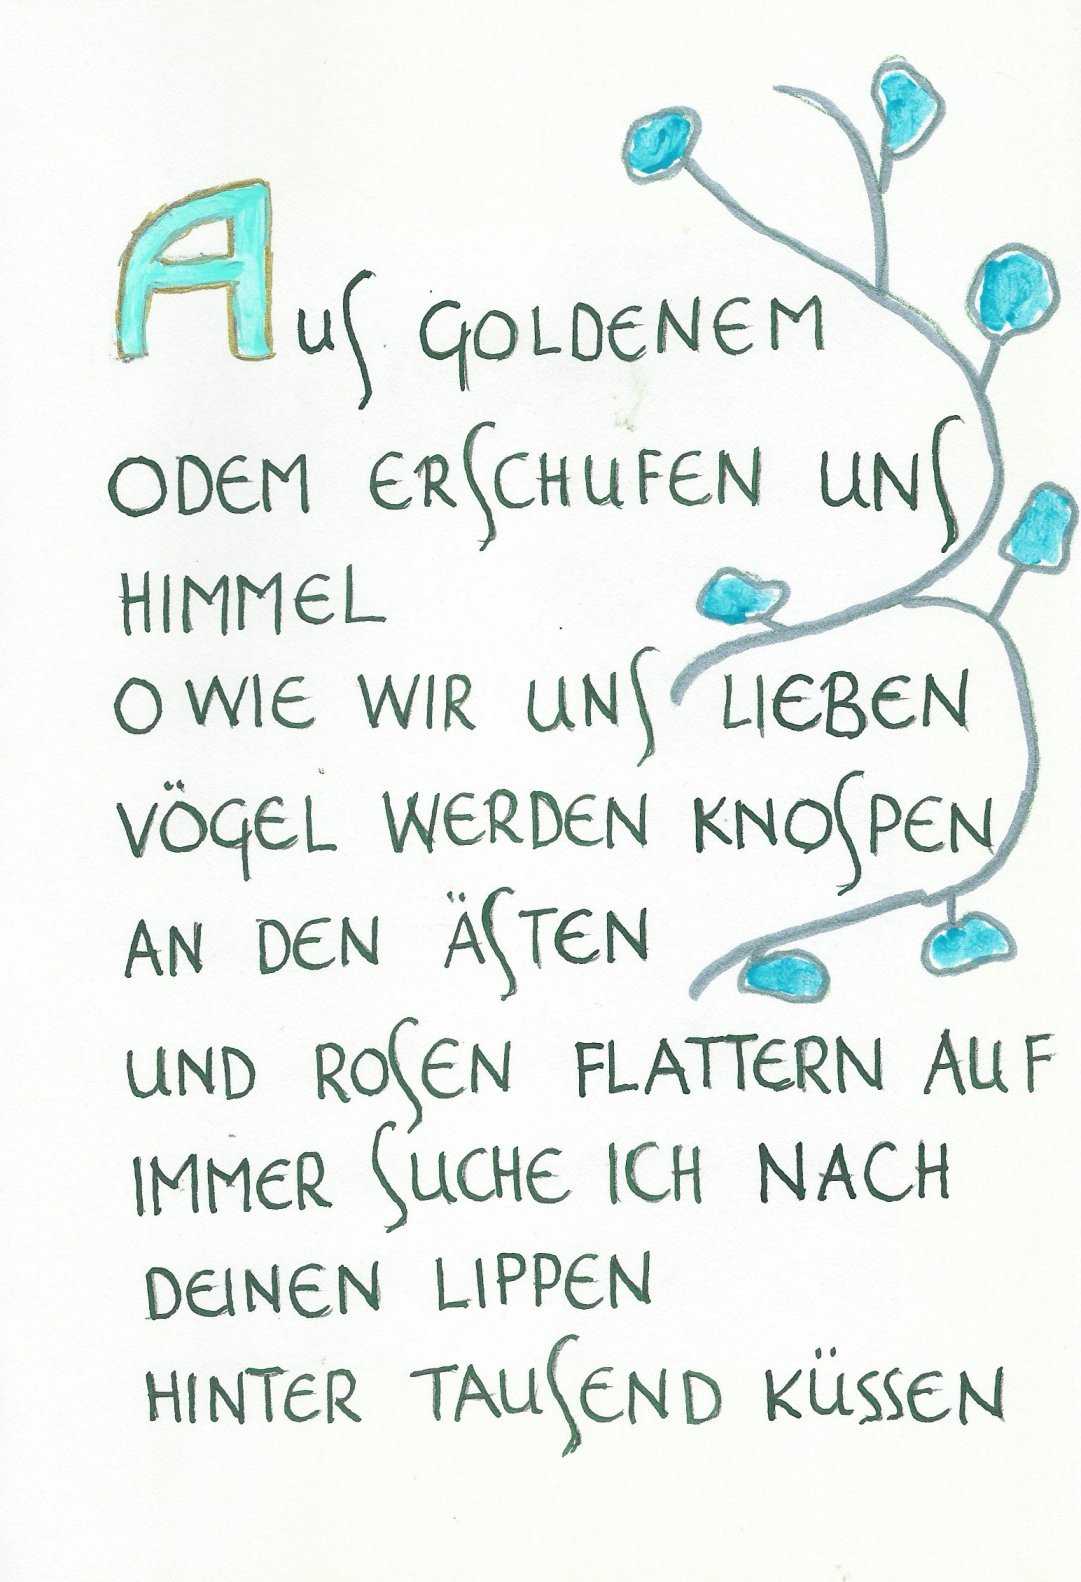 AUS GOLDENEM
ODEM ERSCHUFEN UNS
HIMMEL
O WIE WIR UNS LIEBEN
VÖGEL WERDEN KNOSPEN
AN DEN ÄSTEN
UND ROSEN FLATTERN AUF
IMMER SUCHE ICH NACH
DEINEN LIPPEN
HINTER TAUSEND KÜSSEN